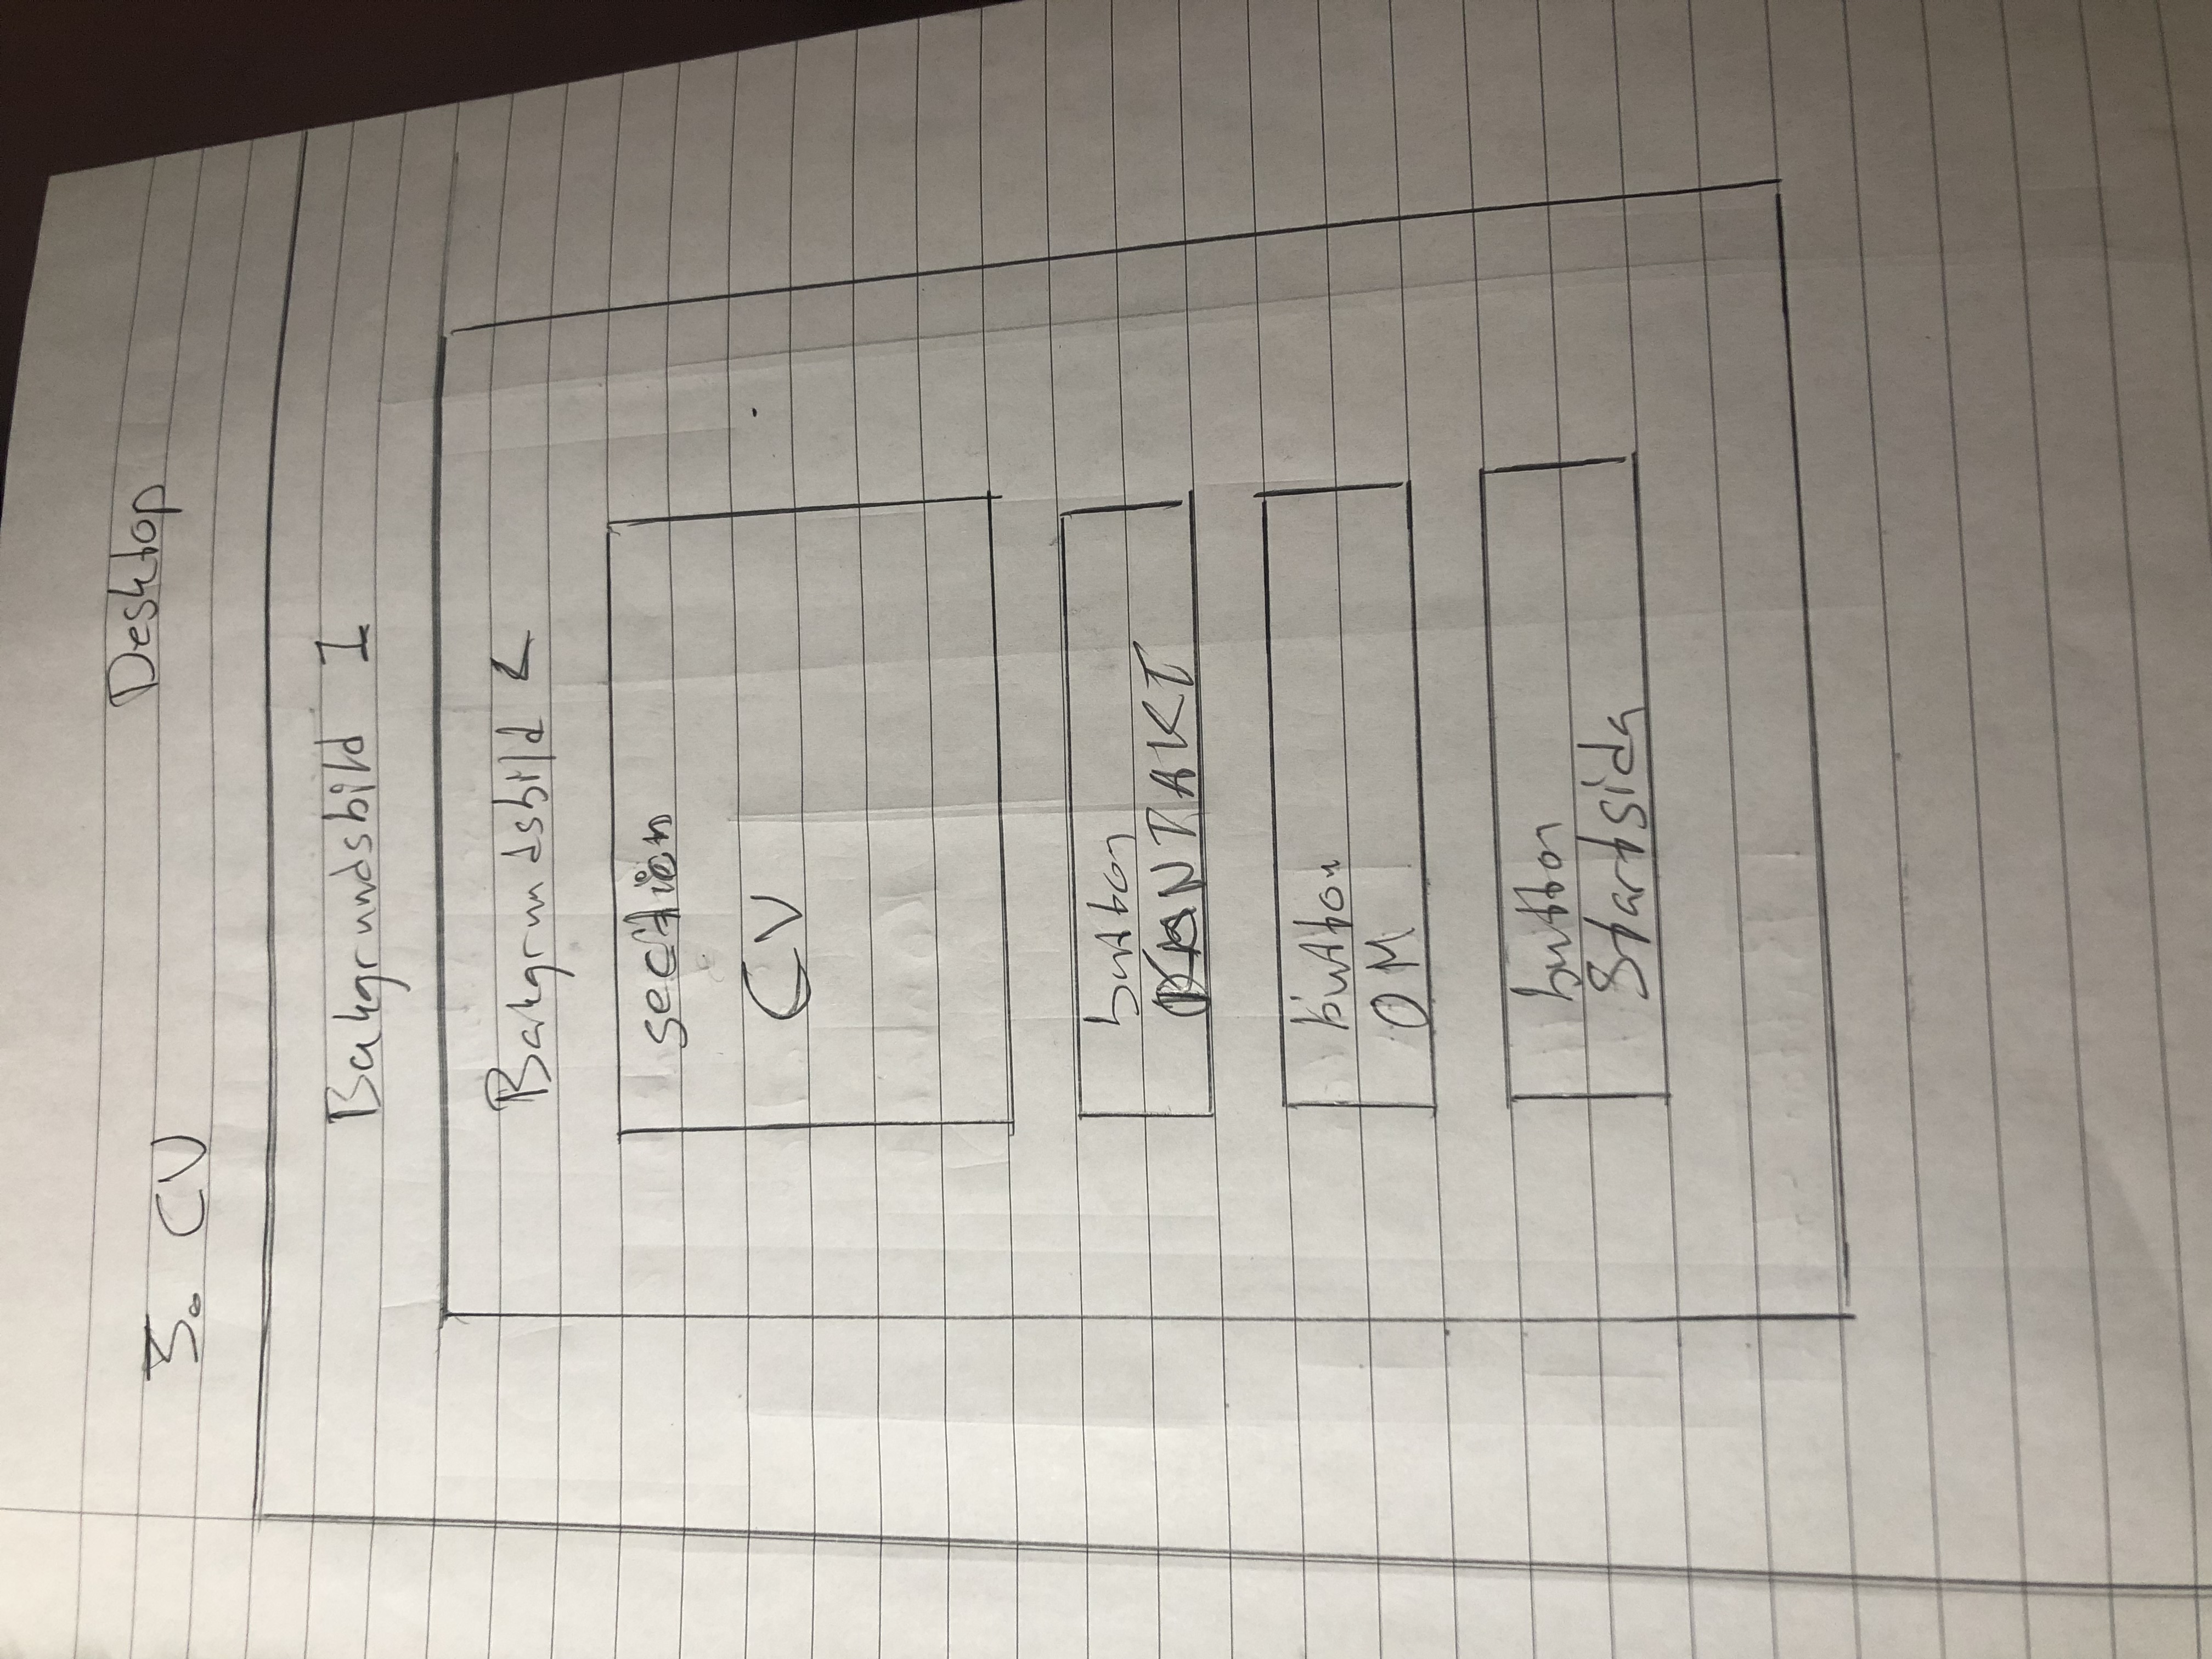 3. CV
Desktop
Bakgrundsbild 1
Bakgrundsbild 2
section
CV
button
KONTAKT
button
OM
button
Startsida